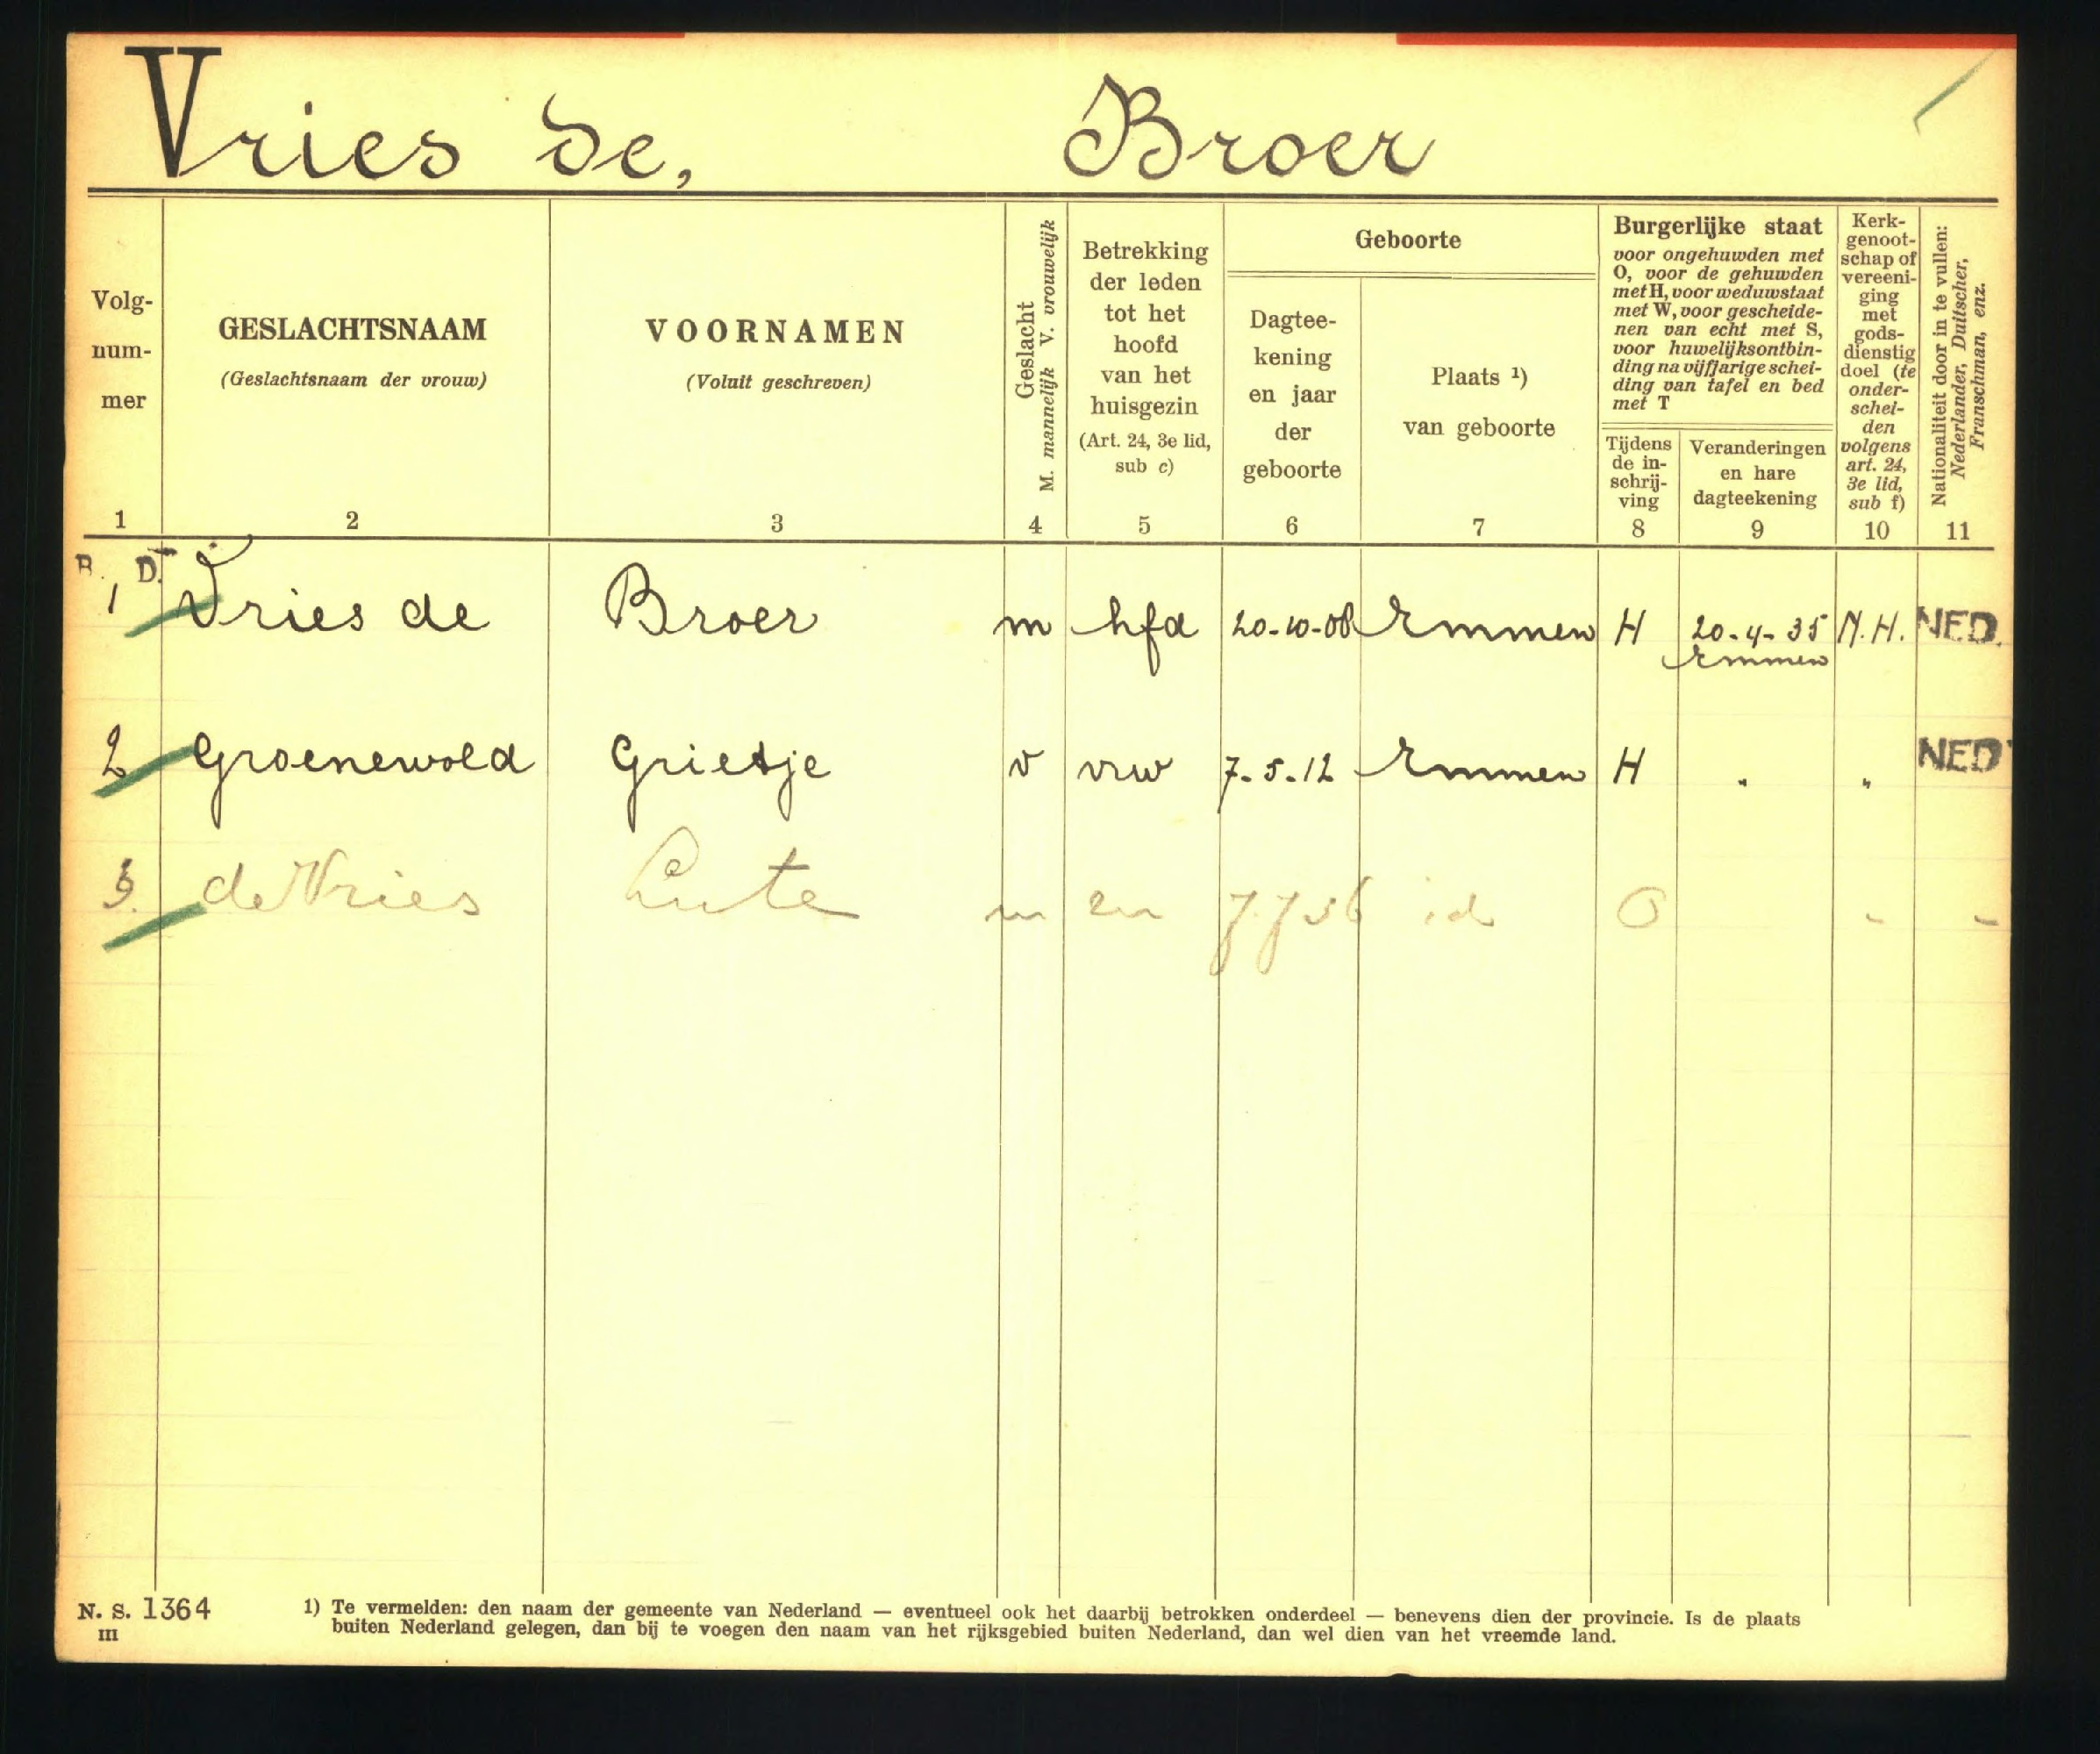 Vries de, Broer
Volg-
num-
mer
1
GESLACHTSNAAM
(Geslachtsnaam der vrouw)
2
VOORNAMEN
(Voluit geschreven)
3
Geslacht
M. mannelijk V. vrouwelijk
4
Betrekking
der leden
tot het
hoofd
van het
huisgezin
(Art. 24, 3e lid,
sub c)
5
Geboorte
Dagtee-
kening
en jaar
der
geboorte
6
Plaats ¹)
van geboorte
7
Burgerlijke staat
voor ongehuwden met
O, voor de gehuwden
met H, voor weduwstaat
met W, voor gescheide-
nen van echt met S,
voor huwelijksontbin-
ding na vijfjarige schei-
ding van tafel en bed
met T
Tijdens
de in-
schrij-
ving
8
Veranderingen
en hare
dagteekening
9
Kerk-
genoot-
schap of
vereeni-
ging
met
gods-
dienstig
doel (te
onder-
schei-
den
volgens
art. 24,
3e lid,
sub f)
10
Nationaliteit door in te vullen:
Nederlander, Duitscher,
Franschman, enz.
11
B. D.
1 Vries de Broer m hfd 20-10-08 Emmen H 20-4-35 N.H. NED.
Emmen
2 Groenewold Grietje v vrw 7-5-12 Emmen H " " NED
3. de Vries Lute m zn 7.7 36 id O - -
N. S. 1364
III
1) Te vermelden: den naam der gemeente van Nederland — eventueel ook het daarbij betrokken onderdeel — benevens dien der provincie. Is de plaats
buiten Nederland gelegen, dan bij te voegen den naam van het rijksgebied buiten Nederland, dan wel dien van het vreemde land.